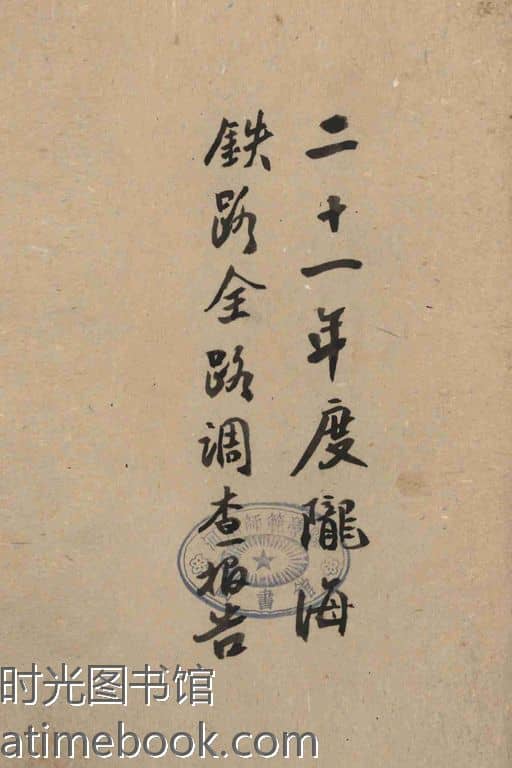 二十一年度隴海
鉄路全路調查报告
时光图书馆
atimebook.com